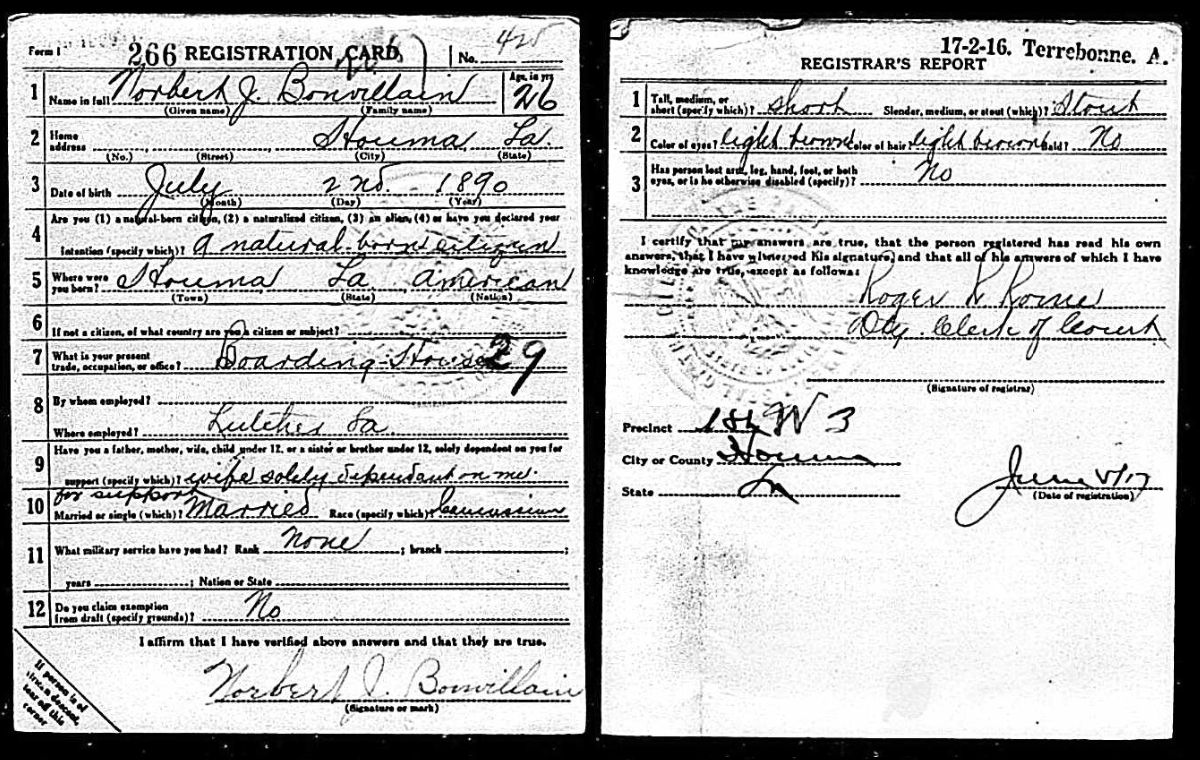 Form 1 266 REGISTRATION CARD No. 425
1 Name in full Norbert J. Bonvillain Age, in yrs 26
(Given name) (Family name)
2 Home address Houma, La.
(No.) (Street) (City) (State)
3 Date of birth July 2nd 1890
(Month) (Day) (Year)
4 Are you (1) a natural-born citizen, (2) a naturalized citizen, (3) an alien, (4) or have you declared your
intention (specify which)? a natural-born citizen
5 Where were you born? Houma La. american
(Town) (State) (Nation)
6 If not a citizen, of what country are you a citizen or subject?
7 What is your present trade, occupation, or office? Boarding House 29
8 By whom employed?
Where employed? Lutcher La
9 Have you a father, mother, wife, child under 12, or a sister or brother under 12, solely dependent on you for
support (specify which)? wife solely dependant on me
for support
10 Married or single (which)? Married Race (specify which)? Caucasian
11 What military service have you had? Rank None ; branch ;
years ; Nation or State
12 Do you claim exemption from draft (specify grounds)? No
I affirm that I have verified above answers and that they are true.
Norbert J. Bonvillain
(Signature or mark)
If person is of
tear off this
corner
17-2-16. Terrebonne, A.
REGISTRAR'S REPORT
1 Tall, medium, or short (specify which)? short Slender, medium, or stout (which)? Stout
2 Color of eyes? light brown Color of hair? light brown Bald? No
3 Has person lost arm, leg, hand, foot, or both eyes, or is he otherwise disabled (specify)? No
I certify that my answers are true, that the person registered has read his own
answers, that I have witnessed his signature, and that all of his answers of which I have
knowledge are true, except as follows:
Roger
Dy. Clerk of Court
(Signature of registrar)
Precinct 1st W 3
City or County Houma
State La June 5/17
(Date of registration)